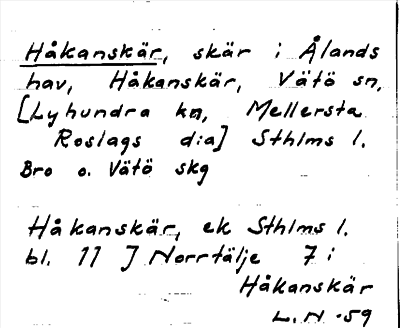 Håkanskär, skär i Ålands
hav, Håkanskär, Vätö sn,
[Lyhundra kn, Mellersta
Roslags d:a] Sthlms l.
Bro o. Vätö skg
Håkanskär, ek Sthlms l.
bl. 11 J Norrtälje 7 i
Håkanskär
L. N. -59